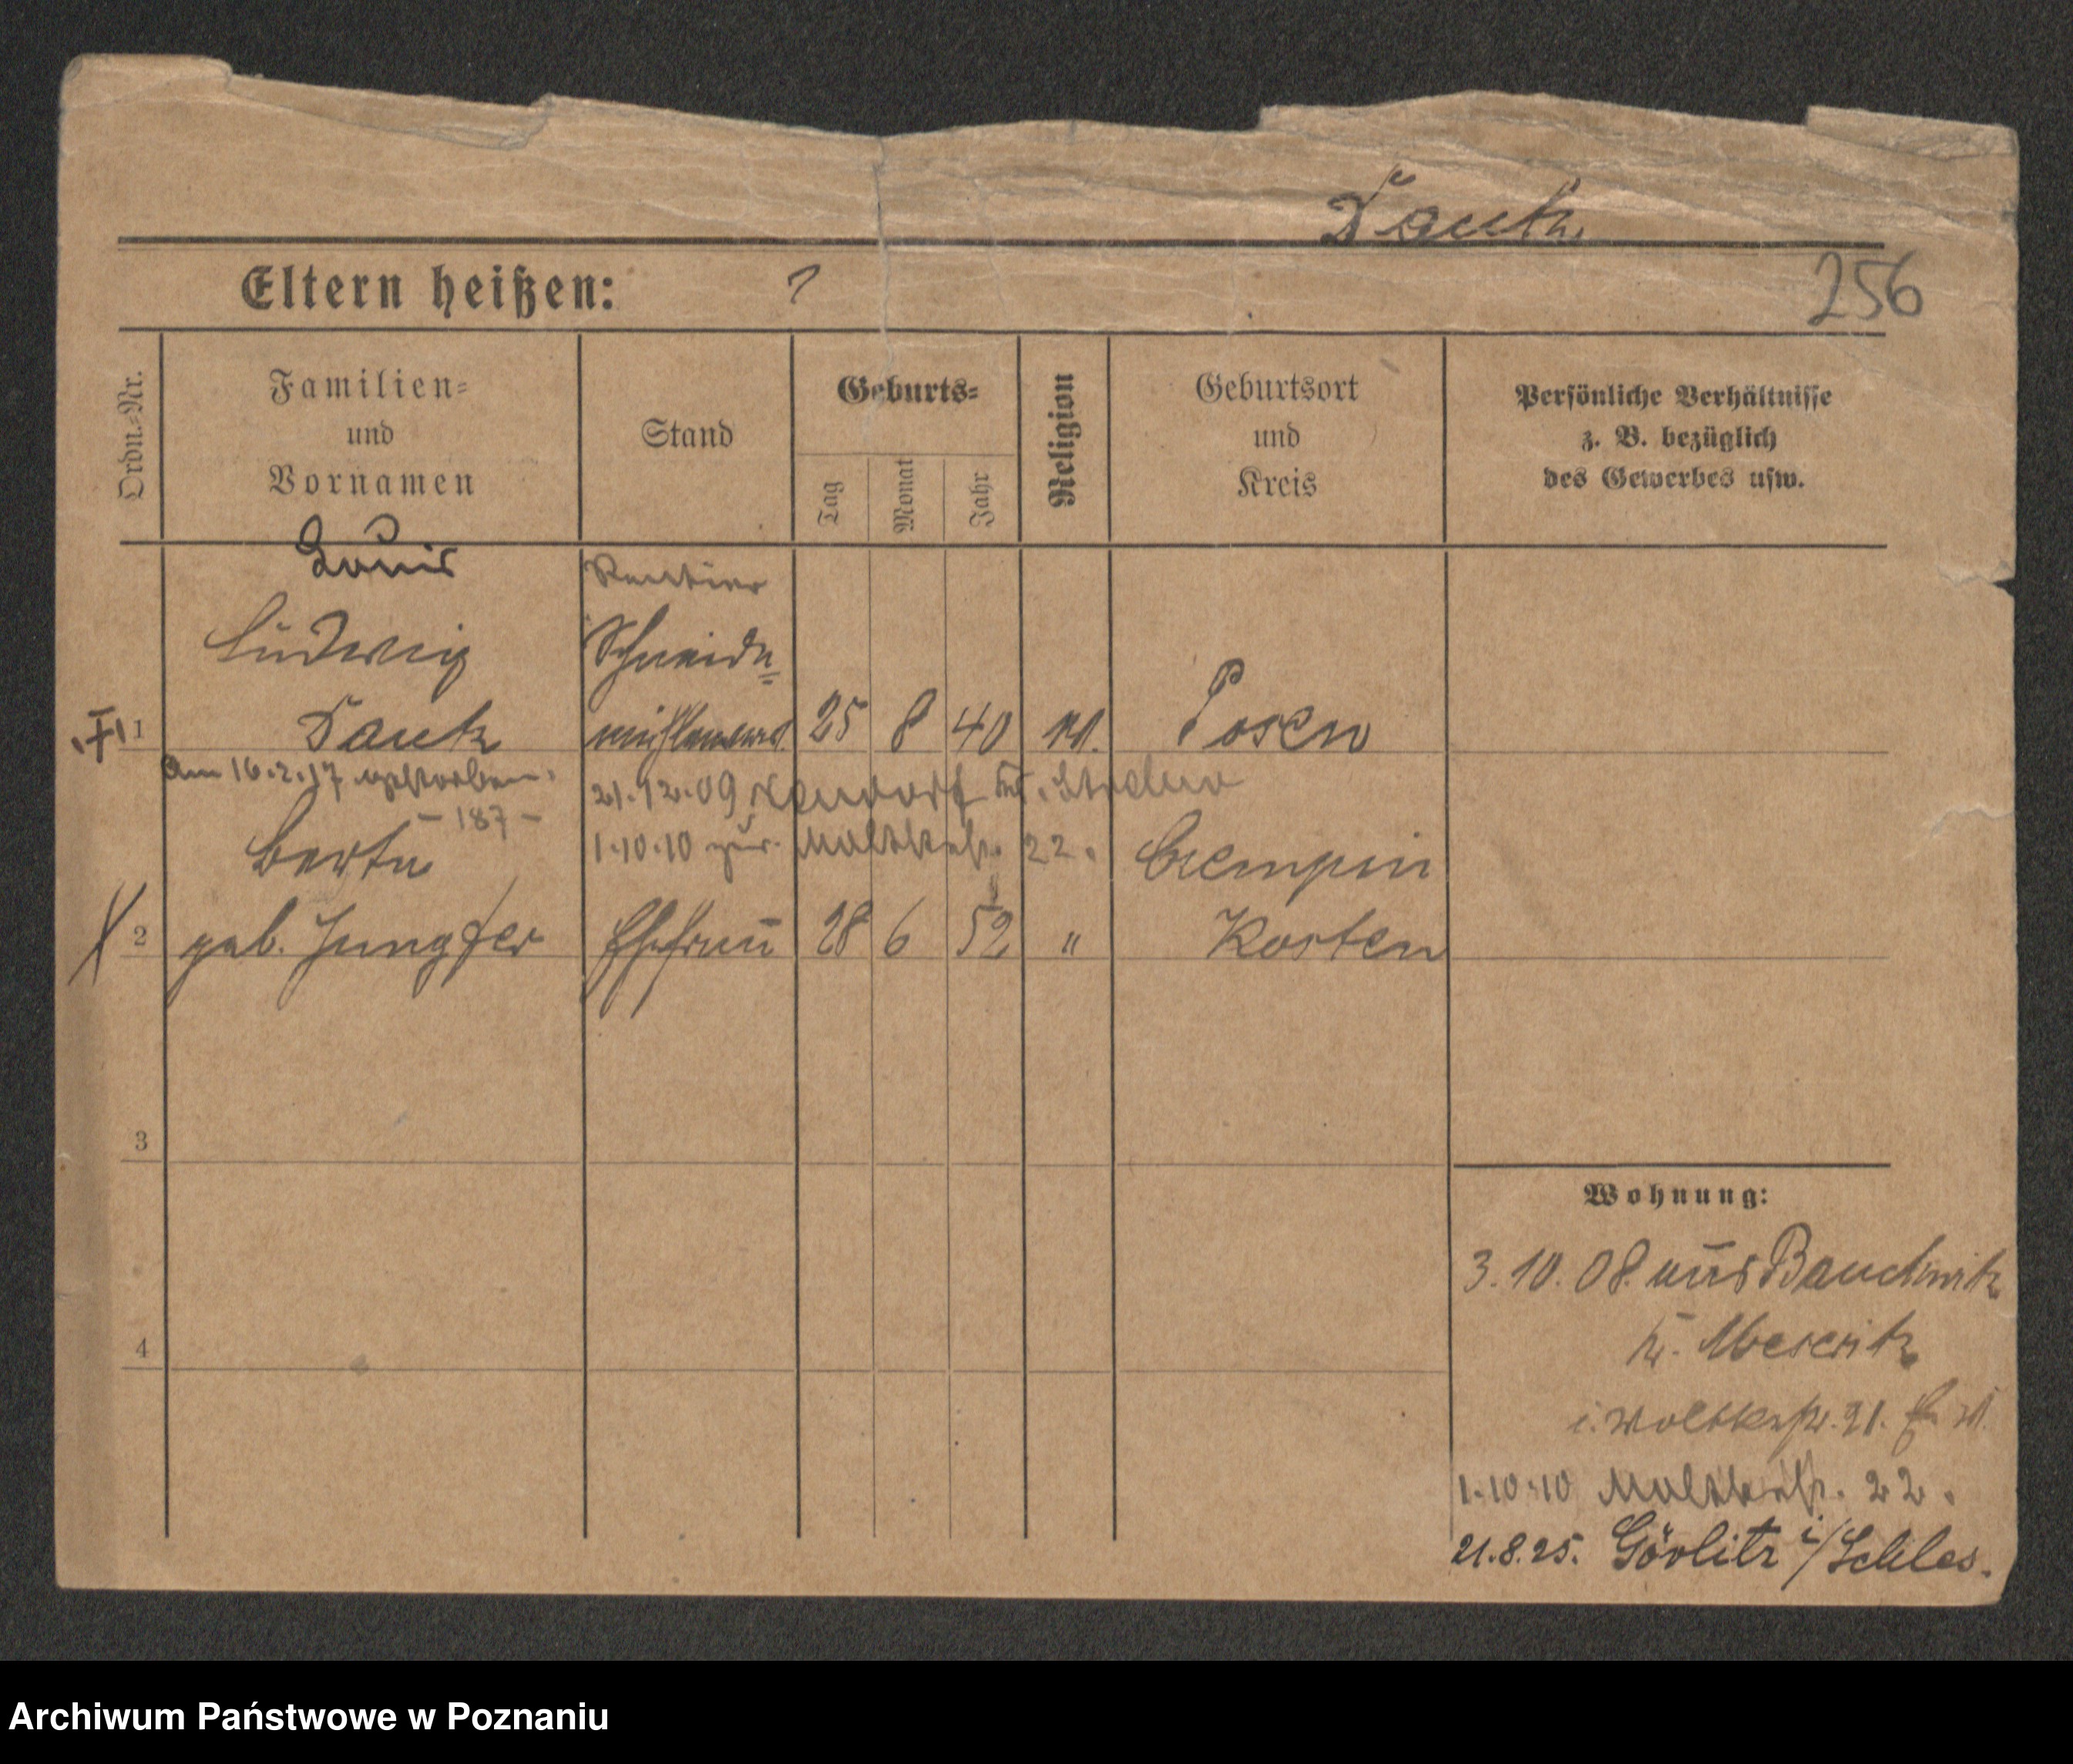 Tauk.
Eltern heißen: ?
256
Ordn.-Nr.
Familien-
und
Vornamen
Stand
Geburts-
Tag
Monat
Jahr
Religion
Geburtsort
und
Kreis
Persönliche Verhältnisse
z. B. bezüglich
des Gewerbes usw.
Louis
Rentier
Ludwig
Schneide-
1 Tauk 25 8 40 Posen
Am 16.2.17 gestorben.
- 187 -
21.12.09
1.10.10 zur. Moltkestr. 22.
Berta
Czempin
2 geb. Jungfer Ehefrau 28 6 52 " Kosten
3
4
Wohnung:
3.10.08. aus Bauchwitz
Kr. Meseritz
1.10.10 Moltkestr. 22.
21.8.25. Görlitz i/Schles.
Archiwum Państwowe w Poznaniu